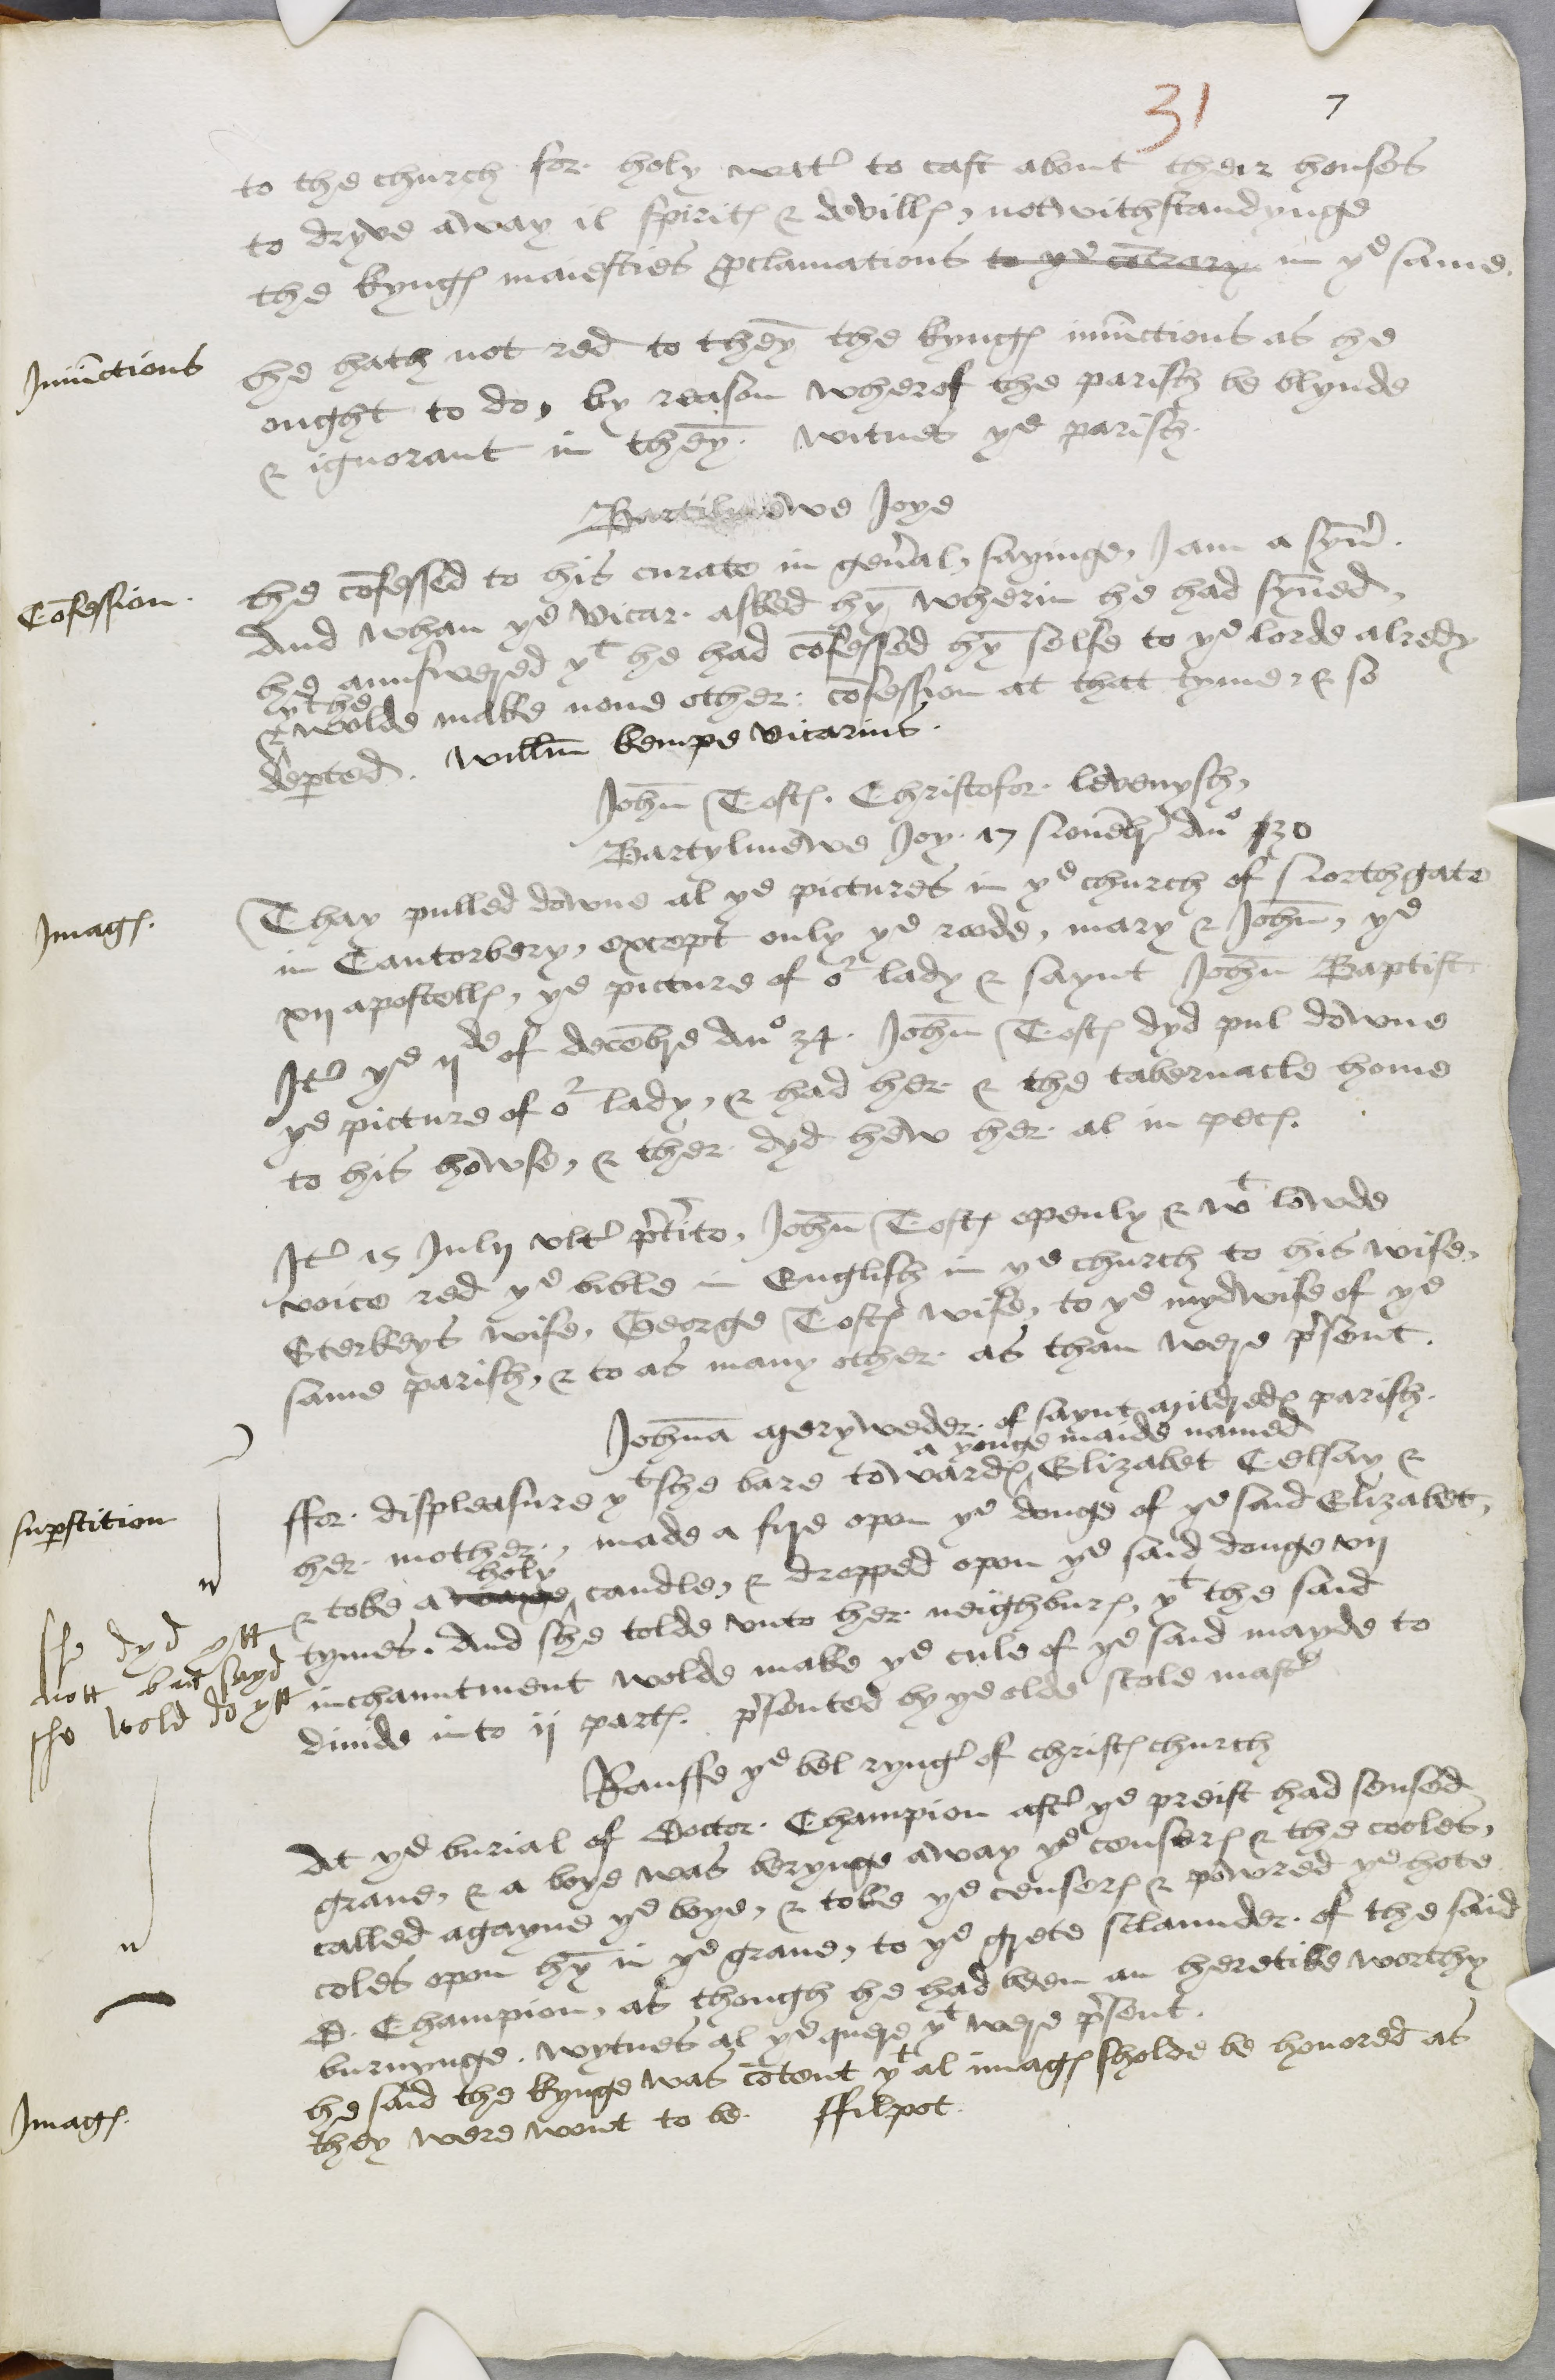 31 7
to the church for holy wat' to cast about their houses
to dryve away il spirit(es) & devill(es), notwithstandynge
the kyng(es) maiesties p(ro)clamations to yᵉ cōtrary in yᵉ same.
Iniūctions
he hath not red to theȳ the kyng(es) iniūctions as he
ought to do, by reason wherof the parish be blynde
& ignorant in theȳ. witnes yᵉ parish.
Bartilmewe Joye
Cōfession.
he cōfessed to his curate in gen'al, sayinge, I am a syn̄'.
And whan yᵉ vicar asked hȳ wherin he had syn̄ed,
he aunswered yᵗ he had cōfessed hȳ selfe to yᵉ lorde alredy
yᵗ he
& wolde make none other cōfession at that tyme, & so
dep(ar)ted. Willm̄ kempe vicarius.
Joh̄n Toft(es). Christofor levenysh,
Bartylmewe Joy. 17 Novēbr' Anº 30
Imag(es).
Thay pulled downe al yᵉ pictures in yᵉ church of Northgate
in Cantorbery, except only yᵉ roode, mary & Joh̄n, yᵉ
xii apostell(es), yᵉ picture of oʳ lady & saynt Joh̄n Baptist
It' yᵉ iiᵈᵉ of decēbre Anº 34. Joh̄n Toft(es) dyd pul downe
yᵉ picture of oʳ lady, & had her & the tabernacle home
to his howse, & ther dyd hew her al in pec(es).
It' 15 Julii ult' p'terito, Joh̄n Toft(es) openly & wᵗ lowde
voice red yᵉ bible in English in yᵉ church to his wife,
Sterkeys wife, George Toft(es) wife, to yᵉ mydwife of yᵉ
same parish, & to as many other as than were p'sent.
Joh̄na Meryweder of saynt Mildred(es) parish.
a yonge maide named
sup(er)stition
ffor displeasure yᵗ she bare toward(es) Elizabet Celsay &
her mother, made a fyre opon yᵉ donge of yᵉ said Elizabet,
holy
& toke a candle, & dropped opon yᵉ said donge vii
tymes. And she tolde unto her neighbur(es), yᵗ the said
inchauntment wolde make yᵉ cule of yᵉ said mayde to
divide into ii part(es). p'sented by yᵉ olde scole mast'
she dyd ytt
nott but sayd
she wold do ytt
Rauffe yᵉ bel ryng' of christ(es) church
At yᵉ burial of doctor Champion aft' yᵉ preist had sensed
grave, & a boye was berynge away yᵉ censer(es) & the cooles,
called agayne yᵉ boye, & toke yᵉ censer(es) & powred yᵉ hote
coles opon hȳ in yᵉ grave, to yᵉ grete sclaunder of the said
D. Champion, as though he had been an heretike worthy
burnynge. wytnes al yᵉ quere yᵗ were p'sent.
Imag(es).
he said the kynge was cōtent yᵗ al imag(es) sholde be honored as
they were wont to be. ffilpot.